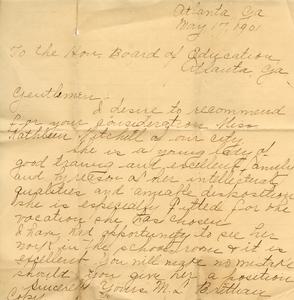 Atlanta Ga
May 17, 1901
To the Hon. Board of Education
Atlanta Ga
Gentlemen
I desire to recommend
for your consideration Miss
Kathleen Mitchell of our city.
She is a young lady of
good training and excellent family
and by reason of her intellectual
qualities and amiable disposition
she is especially fitted for the
vocation she has chosen
I have had opportunity to see her
work in the school room & it is
excellent You will make no mistake
should you give her a position
Sincerely Yours M. L.
Copy